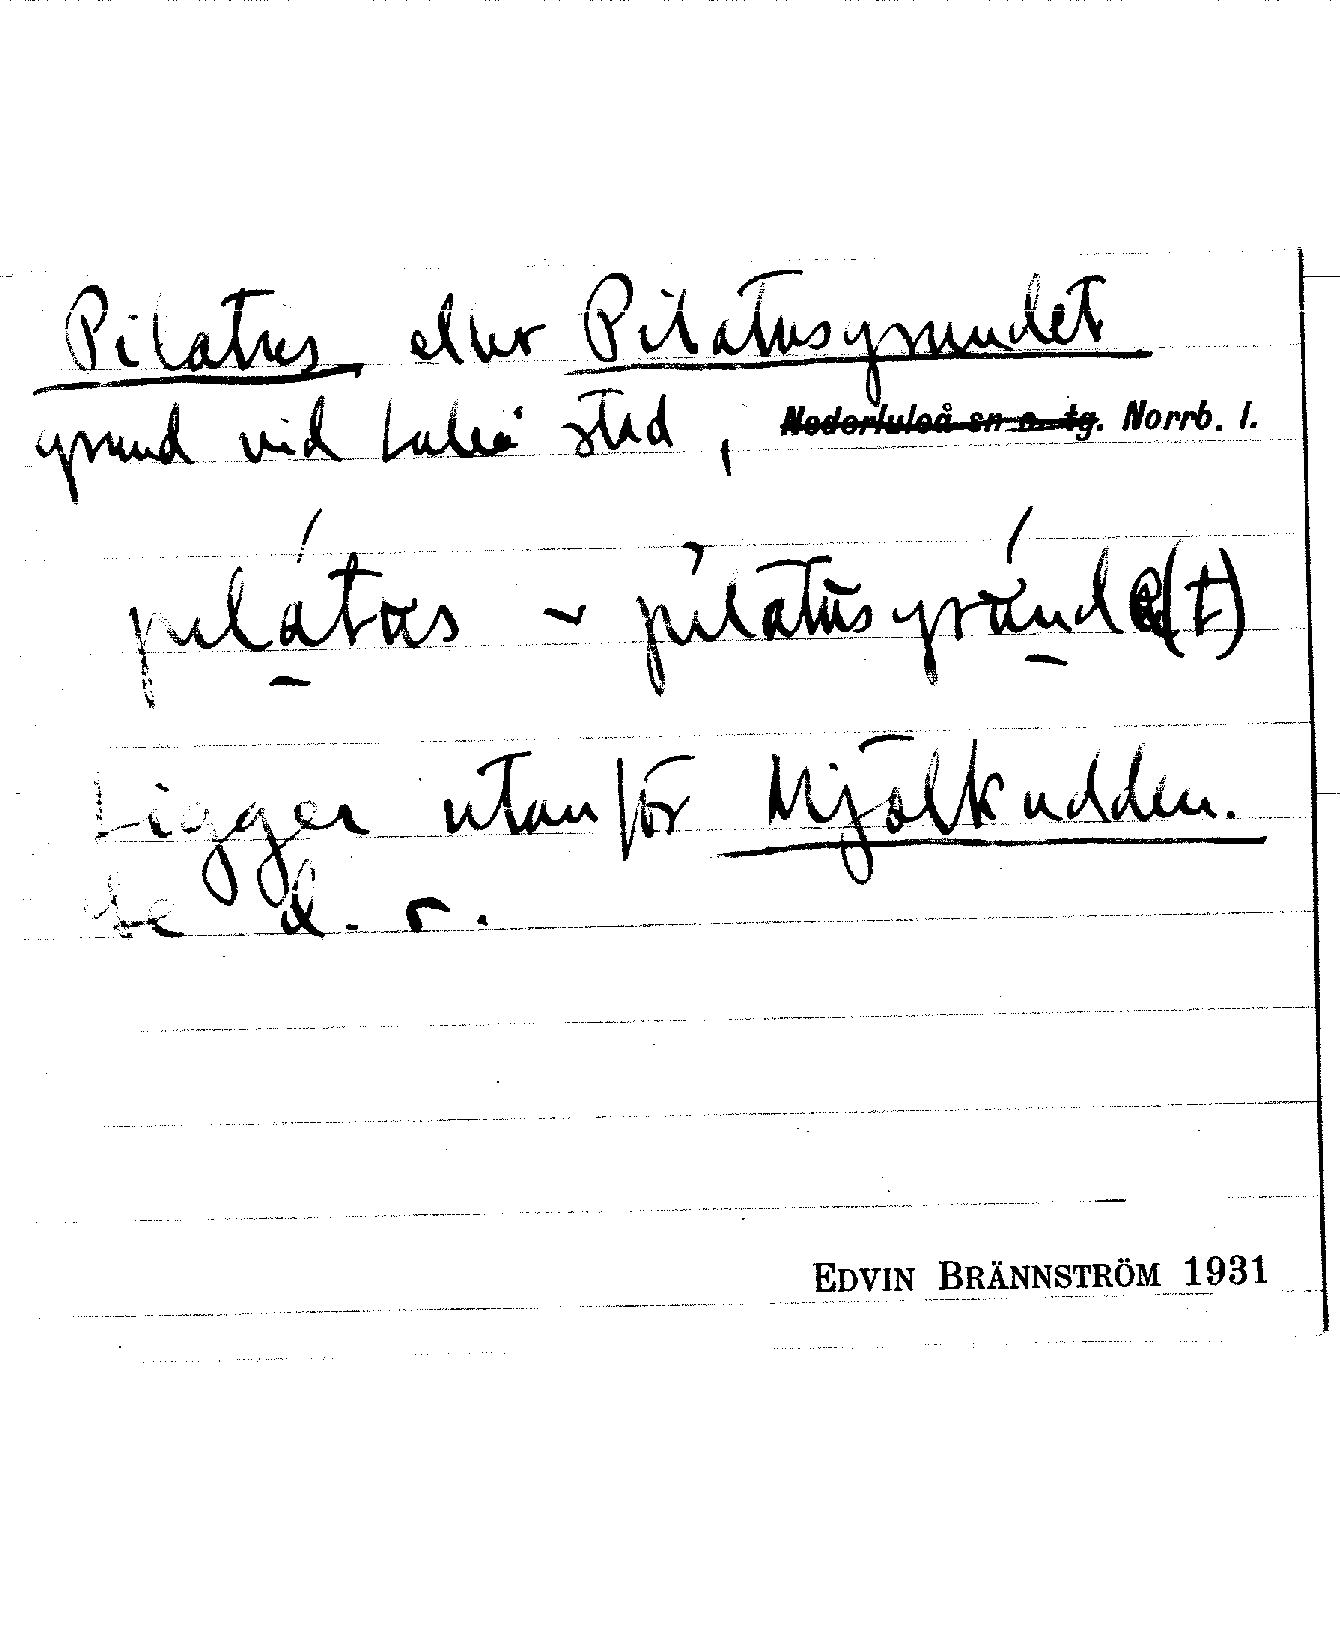 Pilatus eller Pilatusgrundet
grund vid Luleå stad, Nederluleå sn o. tg. Norrb. l.
pilátas ~ pilatusgránde(t)
Ligger utanför Mjölkudden.
Se d. o.
EDVIN BRÄNNSTRÖM 1931